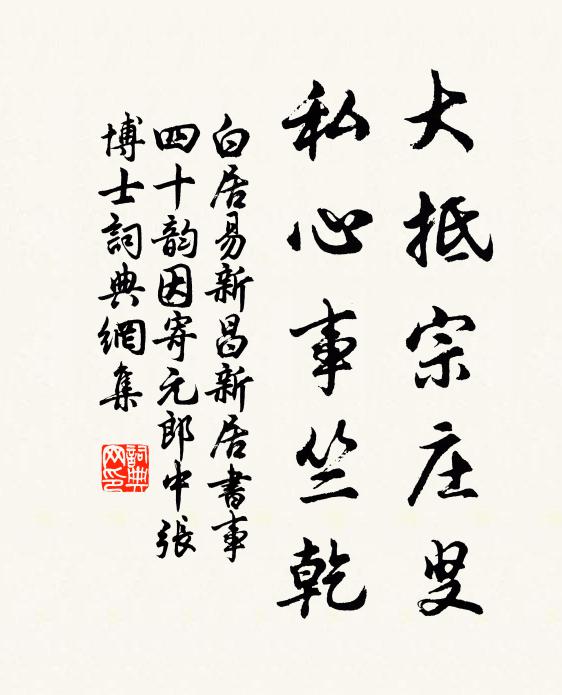 大抵宗庄叟
私心事竺乾
白居易新昌新居書事
四十韵因寄元郎中張
博士詞典網集
詞典
网印